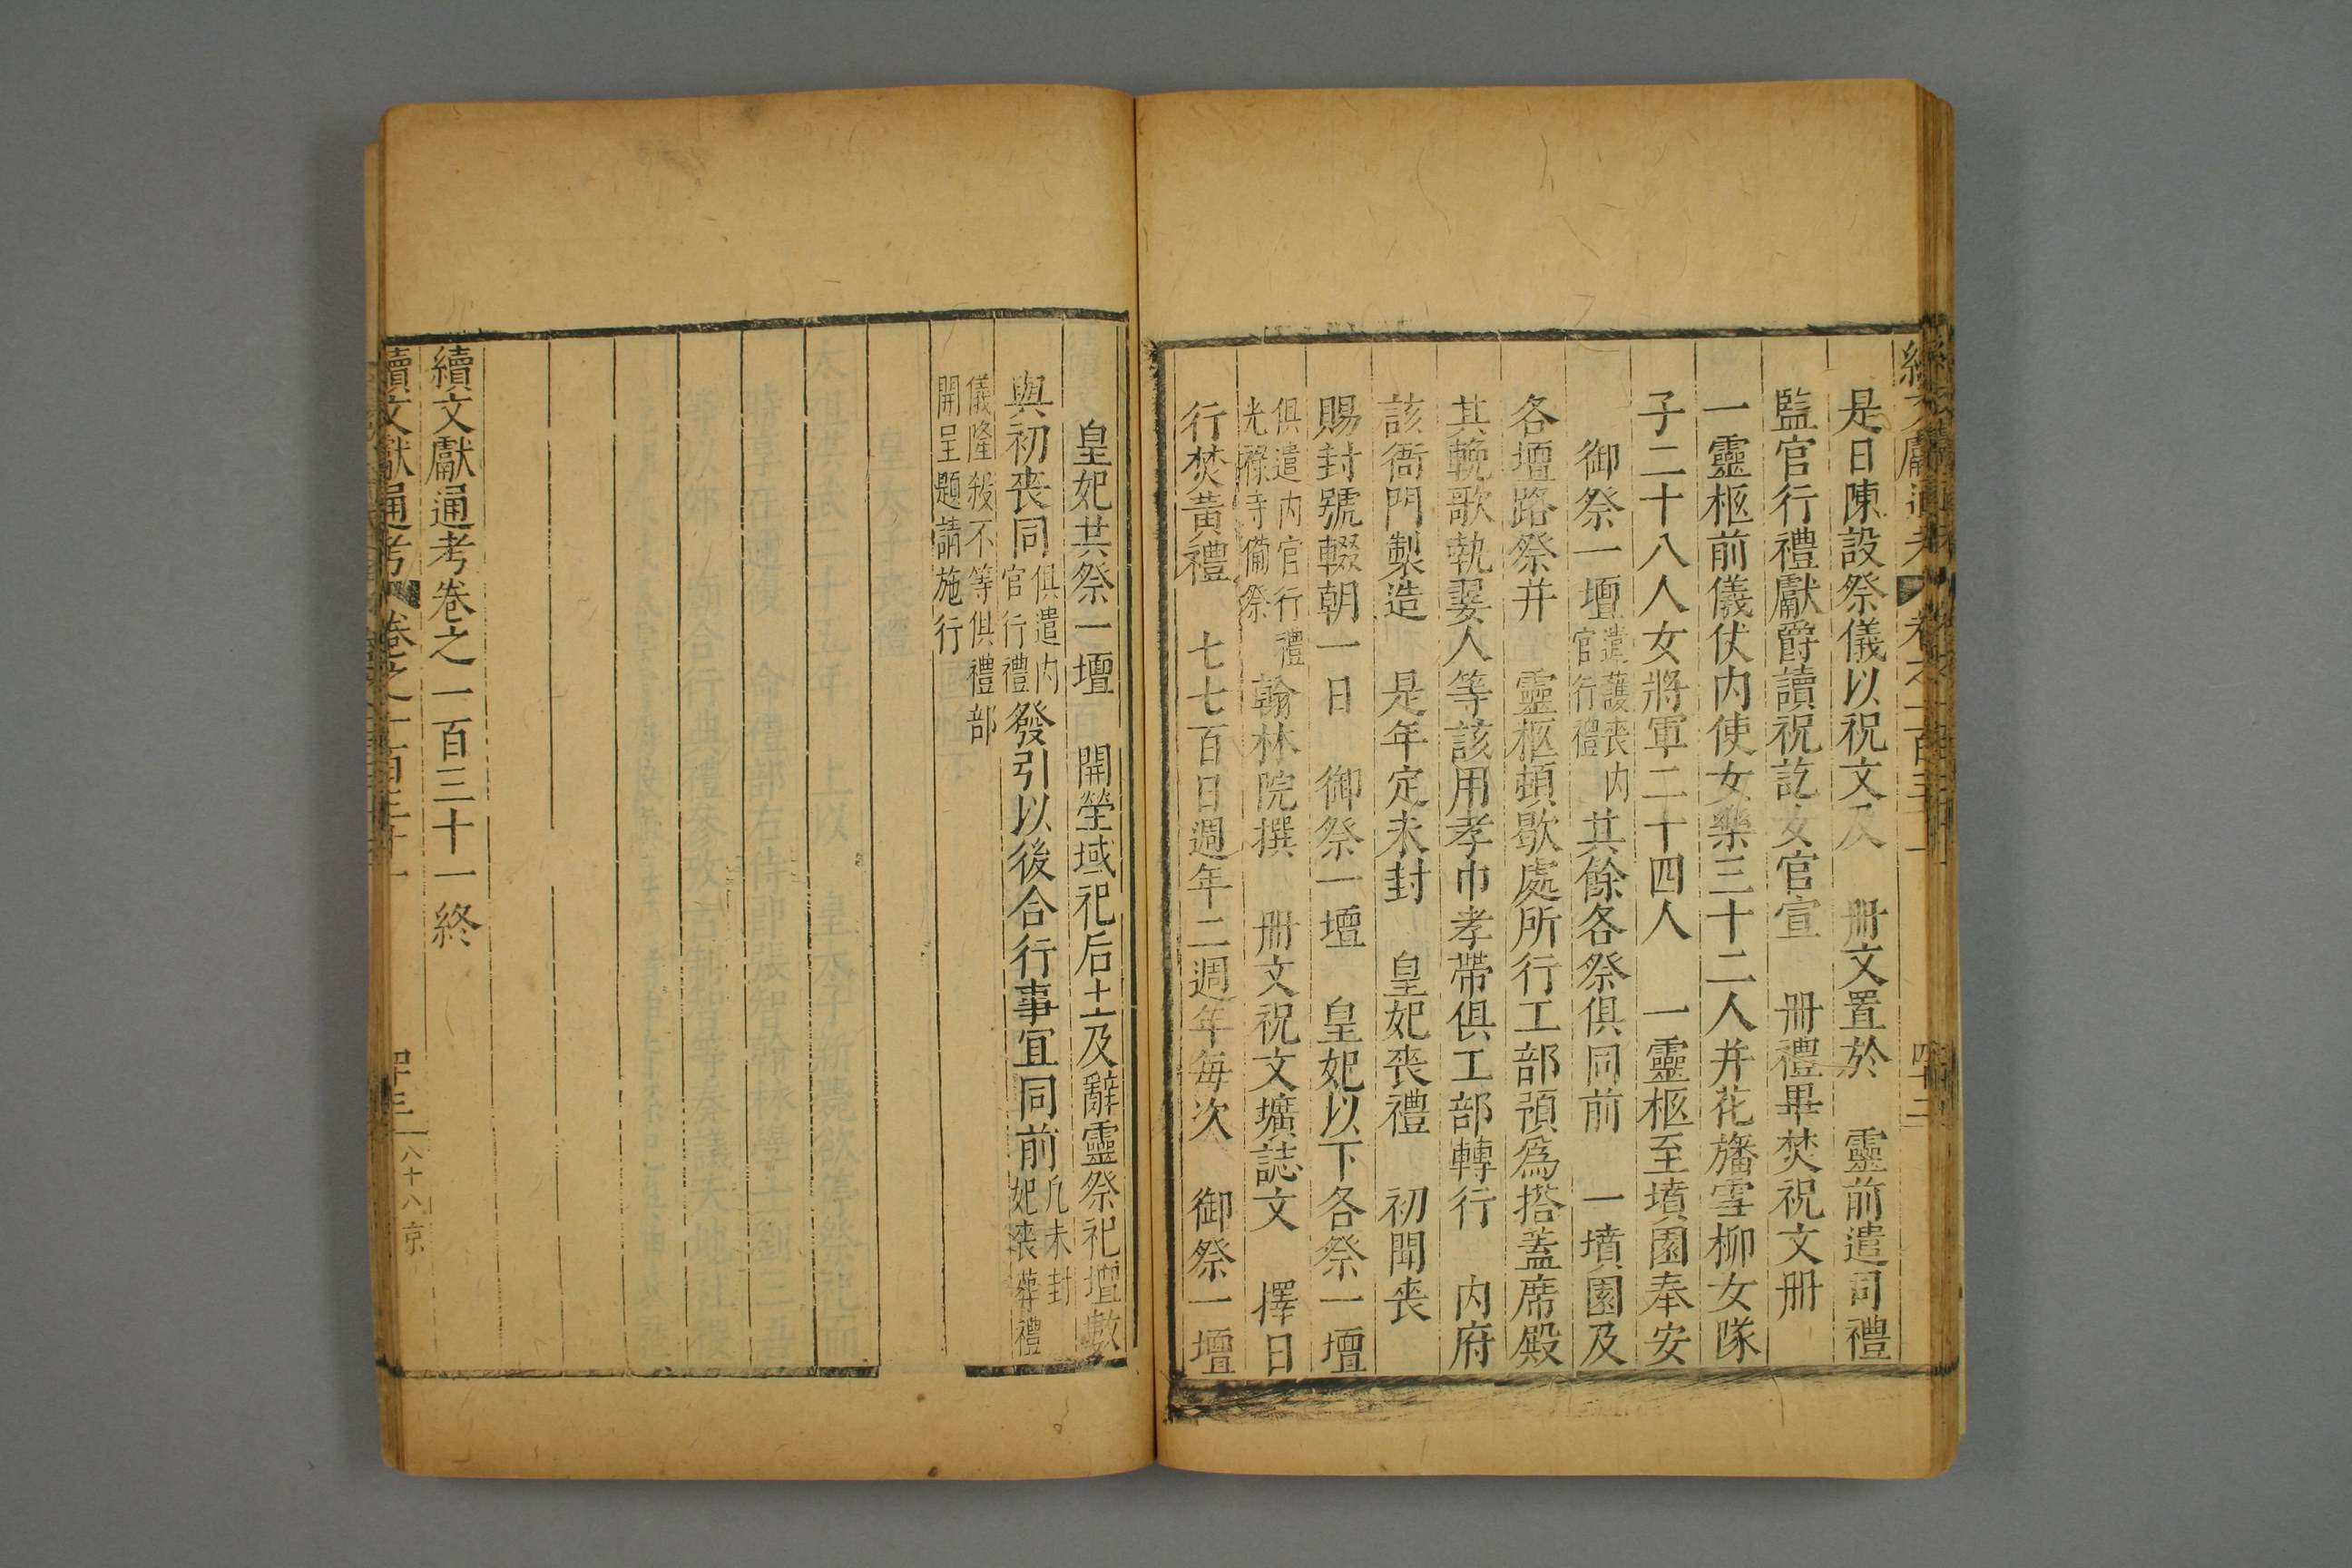 是日陳設祭儀以祝文及　冊文置於　靈前遣司禮
監官行禮獻爵讀祝訖女官宣　冊禮畢焚祝文冊
一靈柩前儀伏内使女樂三十二人并花旛雪柳女隊
子二十八人女將軍二十四人　一靈柩至墳園奉安
御祭一壇遣護喪内官行禮其餘各祭俱同前　一墳園及
各壇路祭并　靈柩頓歇處所行工部預爲搭蓋席殿
其輓歌執翣人等該用孝巾孝帶俱工部轉行　内府
該衙門製造　是年定未封　皇妃喪禮　初聞喪
賜封號輟朝一日　御祭一壇　皇妃以下各祭一壇
俱遣内官行禮光祿寺備祭　翰林院撰　冊文祝文壙誌文　擇日
行焚黃禮　七七百日週年二週年每次　御祭一壇
皇妃共祭一壇　開塋域祀后土及辭靈祭祀壇數
與初喪同俱遣内官行禮發引以後合行事宜同前凡未封妃喪葬禮
儀隆殺不等俱禮部開呈題請施行
續文獻通考卷之一百三十一終
續文獻通考　卷之一百三十一　四十三　八十八　京